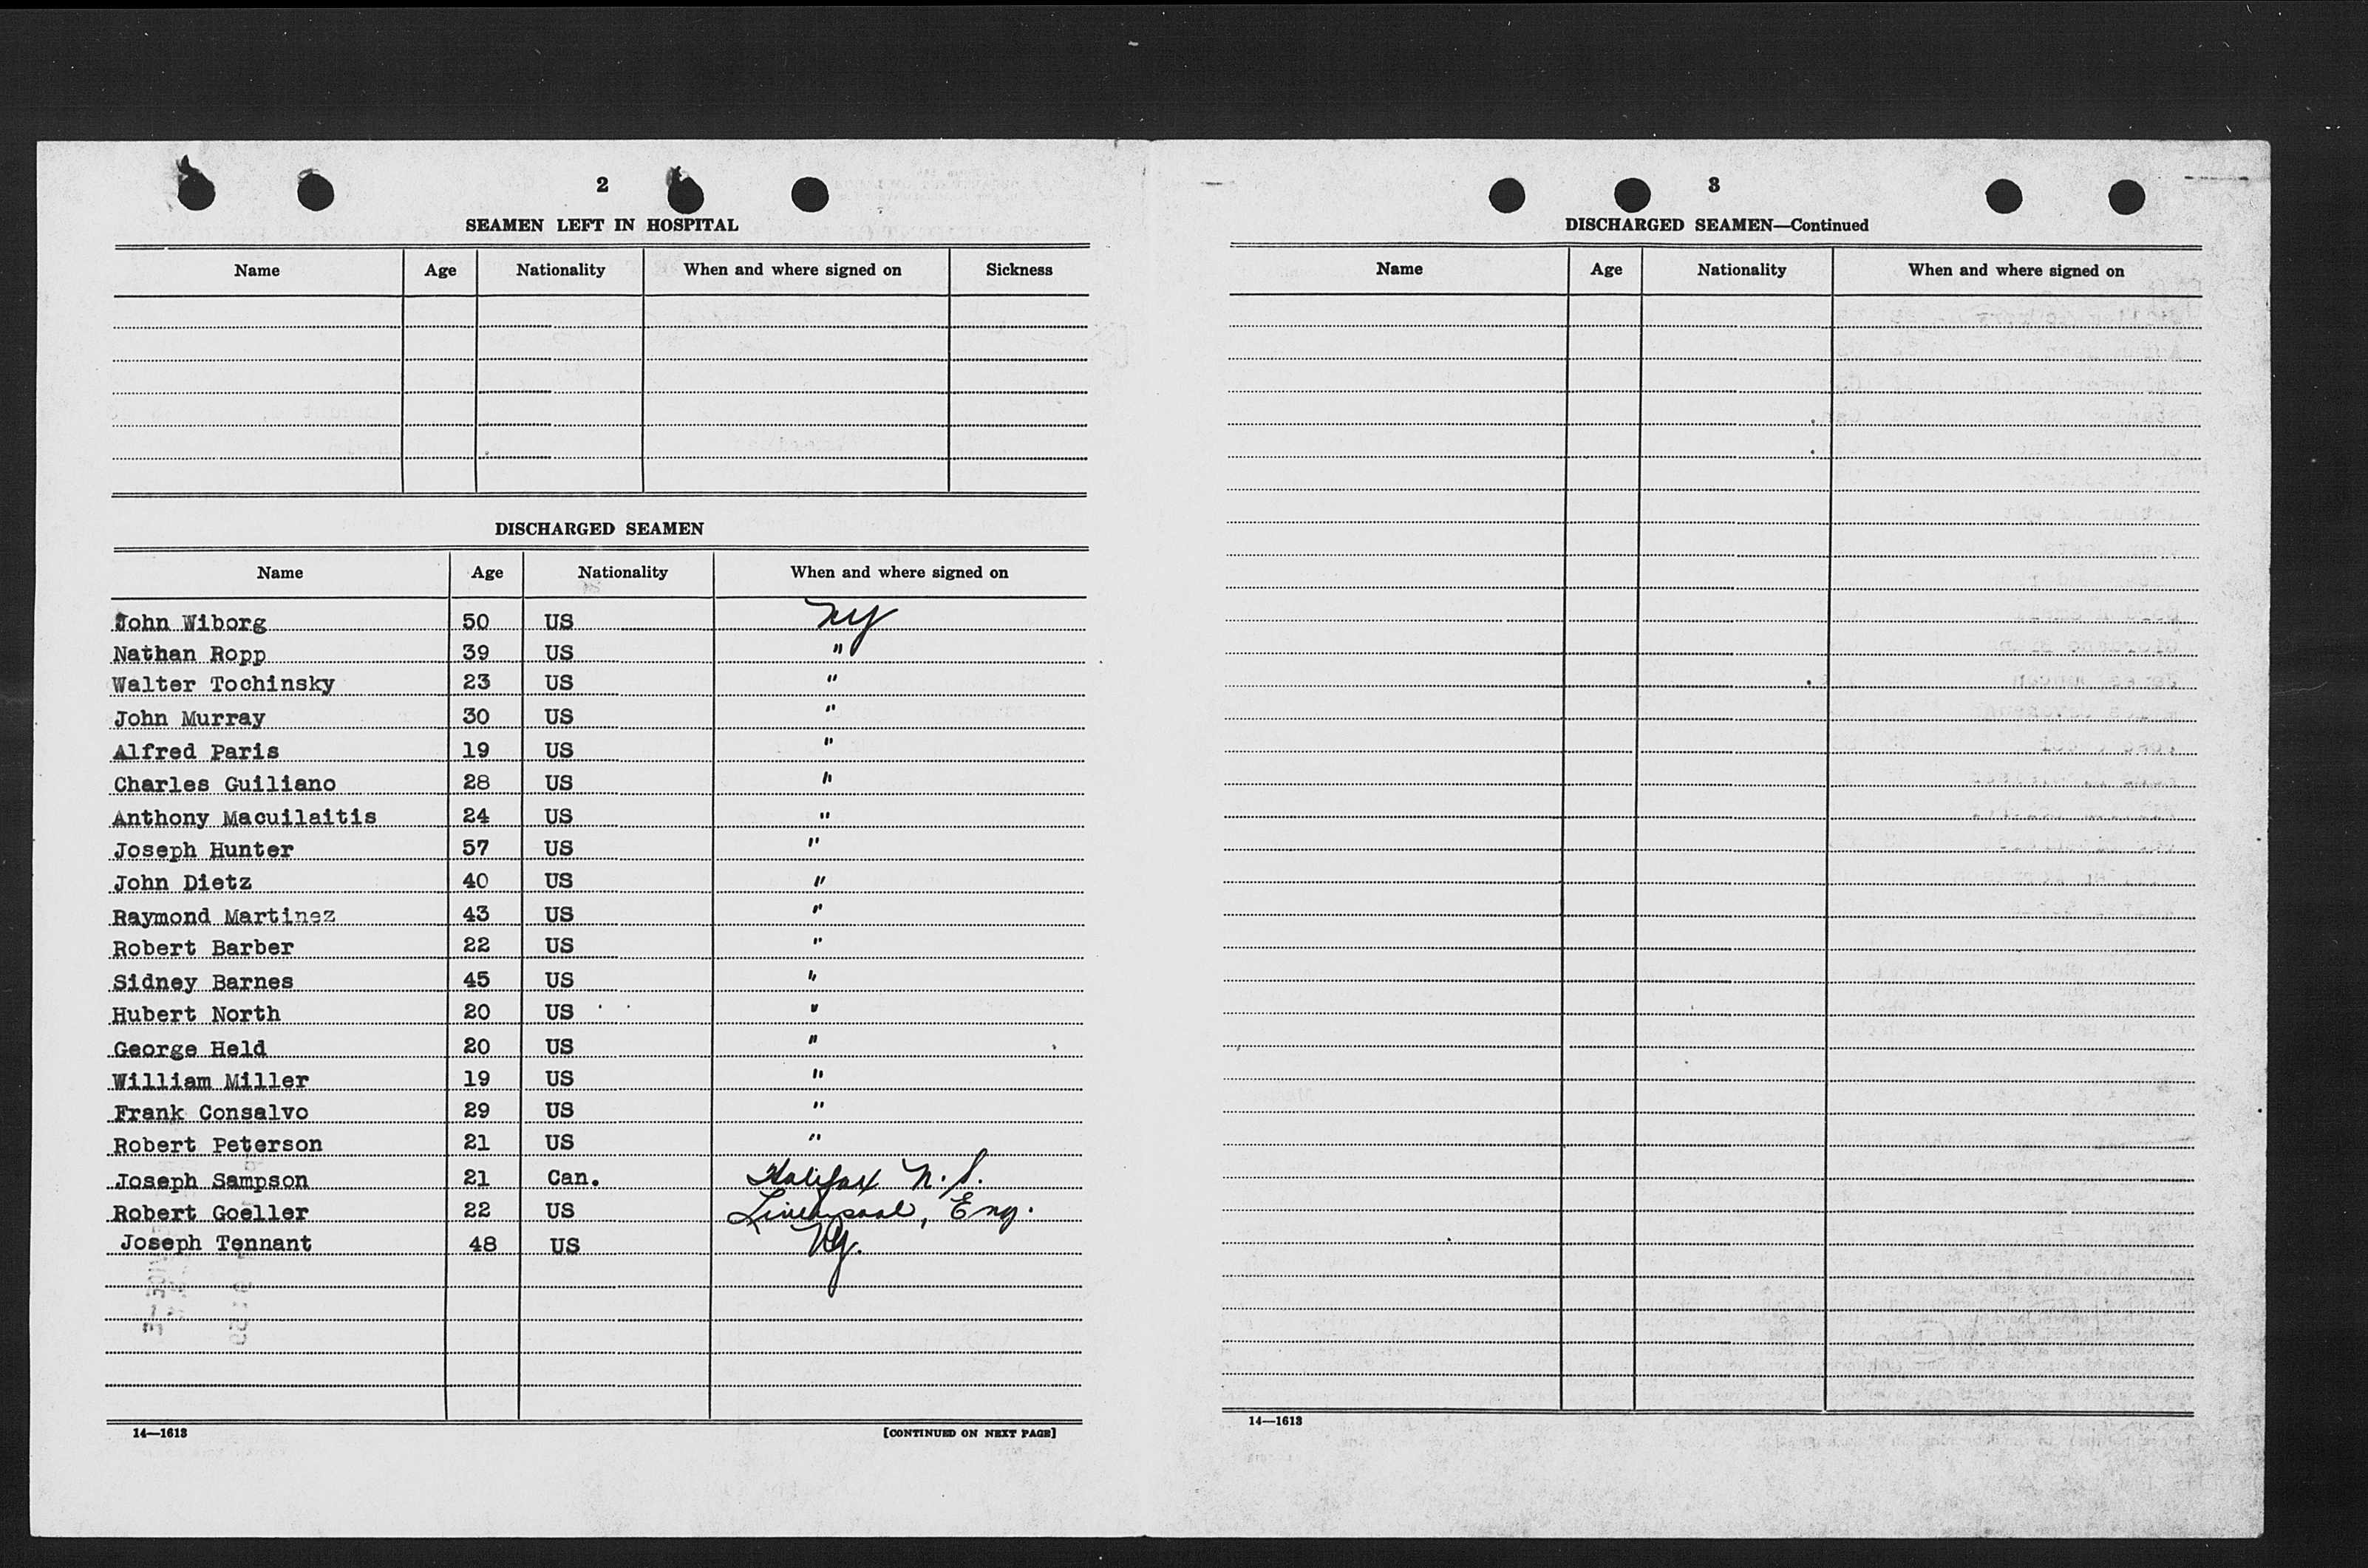 2
SEAMEN LEFT IN HOSPITAL
Name Age Nationality When and where signed on Sickness
DISCHARGED SEAMEN
Name Age Nationality When and where signed on
John Wiborg 50 US NY
Nathan Ropp 39 US "
Walter Tochinsky 23 US "
John Murray 30 US "
Alfred Paris 19 US "
Charles Guiliano 28 US "
Anthony Macuilaitis 24 US "
Joseph Hunter 57 US "
John Dietz 40 US "
Raymond Martinez 43 US "
Robert Barber 22 US "
Sidney Barnes 45 US "
Hubert North 20 US "
George Held 20 US "
William Miller 19 US "
Frank Consalvo 29 US "
Robert Peterson 21 US "
Joseph Sampson 21 Can. Halifax N.S.
Robert Goeller 22 US Liverpool, Eng.
Joseph Tennant 48 US NY.
14—1613 [CONTINUED ON NEXT PAGE]
3
DISCHARGED SEAMEN—Continued
Name Age Nationality When and where signed on
14—1613